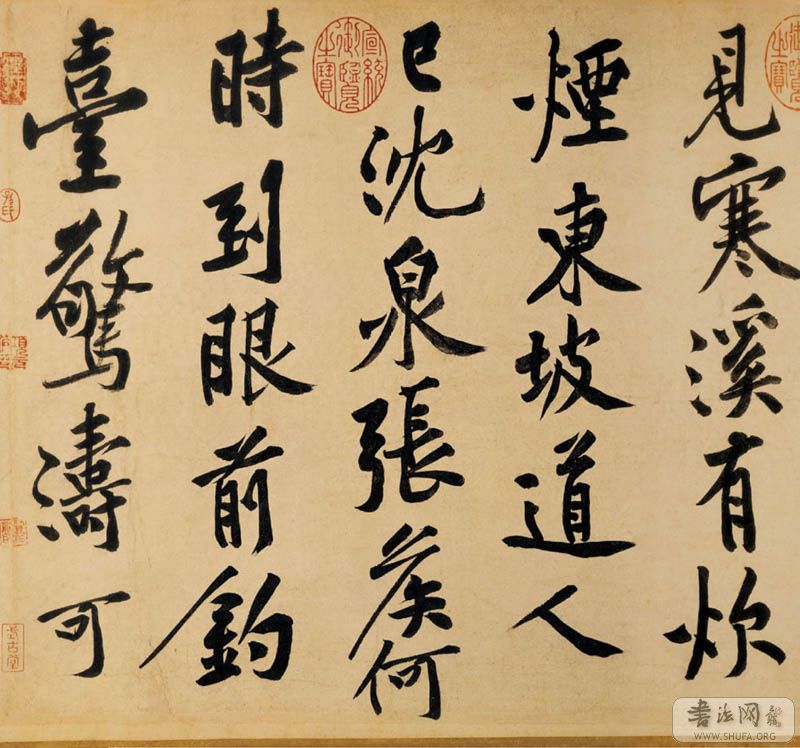 見寒溪有炊
煙東坡道人
已沈泉張侯何
時到眼前釣
臺驚濤可
宣統御覽之寶
書法网
WWW.SHUFA.ORG